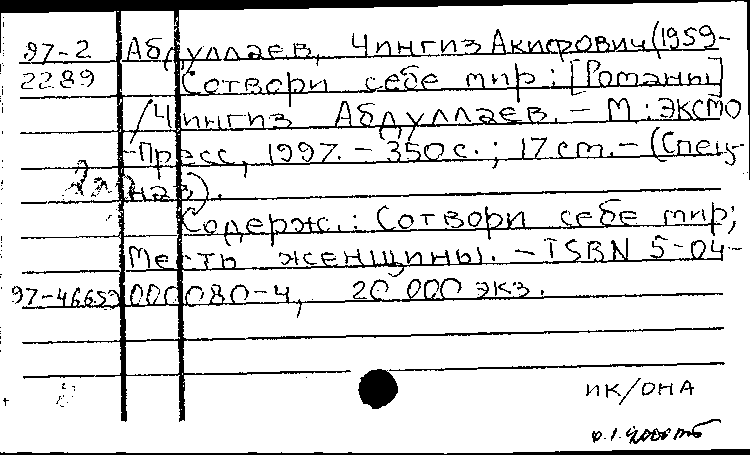 97-2 Абдуллаев, Чингиз Акифович (1959-
2289 Сотвори себе мир : [Романы]
/Чингиз Абдуллаев. - М : ЭКСМО
-Пресс, 1997. - 350 с. ; 17 cm. - (Спец-
наз).
Содерж.: Сотвори себе мир;
Месть женщины. - ISBN 5-04-
97-46659 000080-4, 20 000 экз.
ИК/ОНА